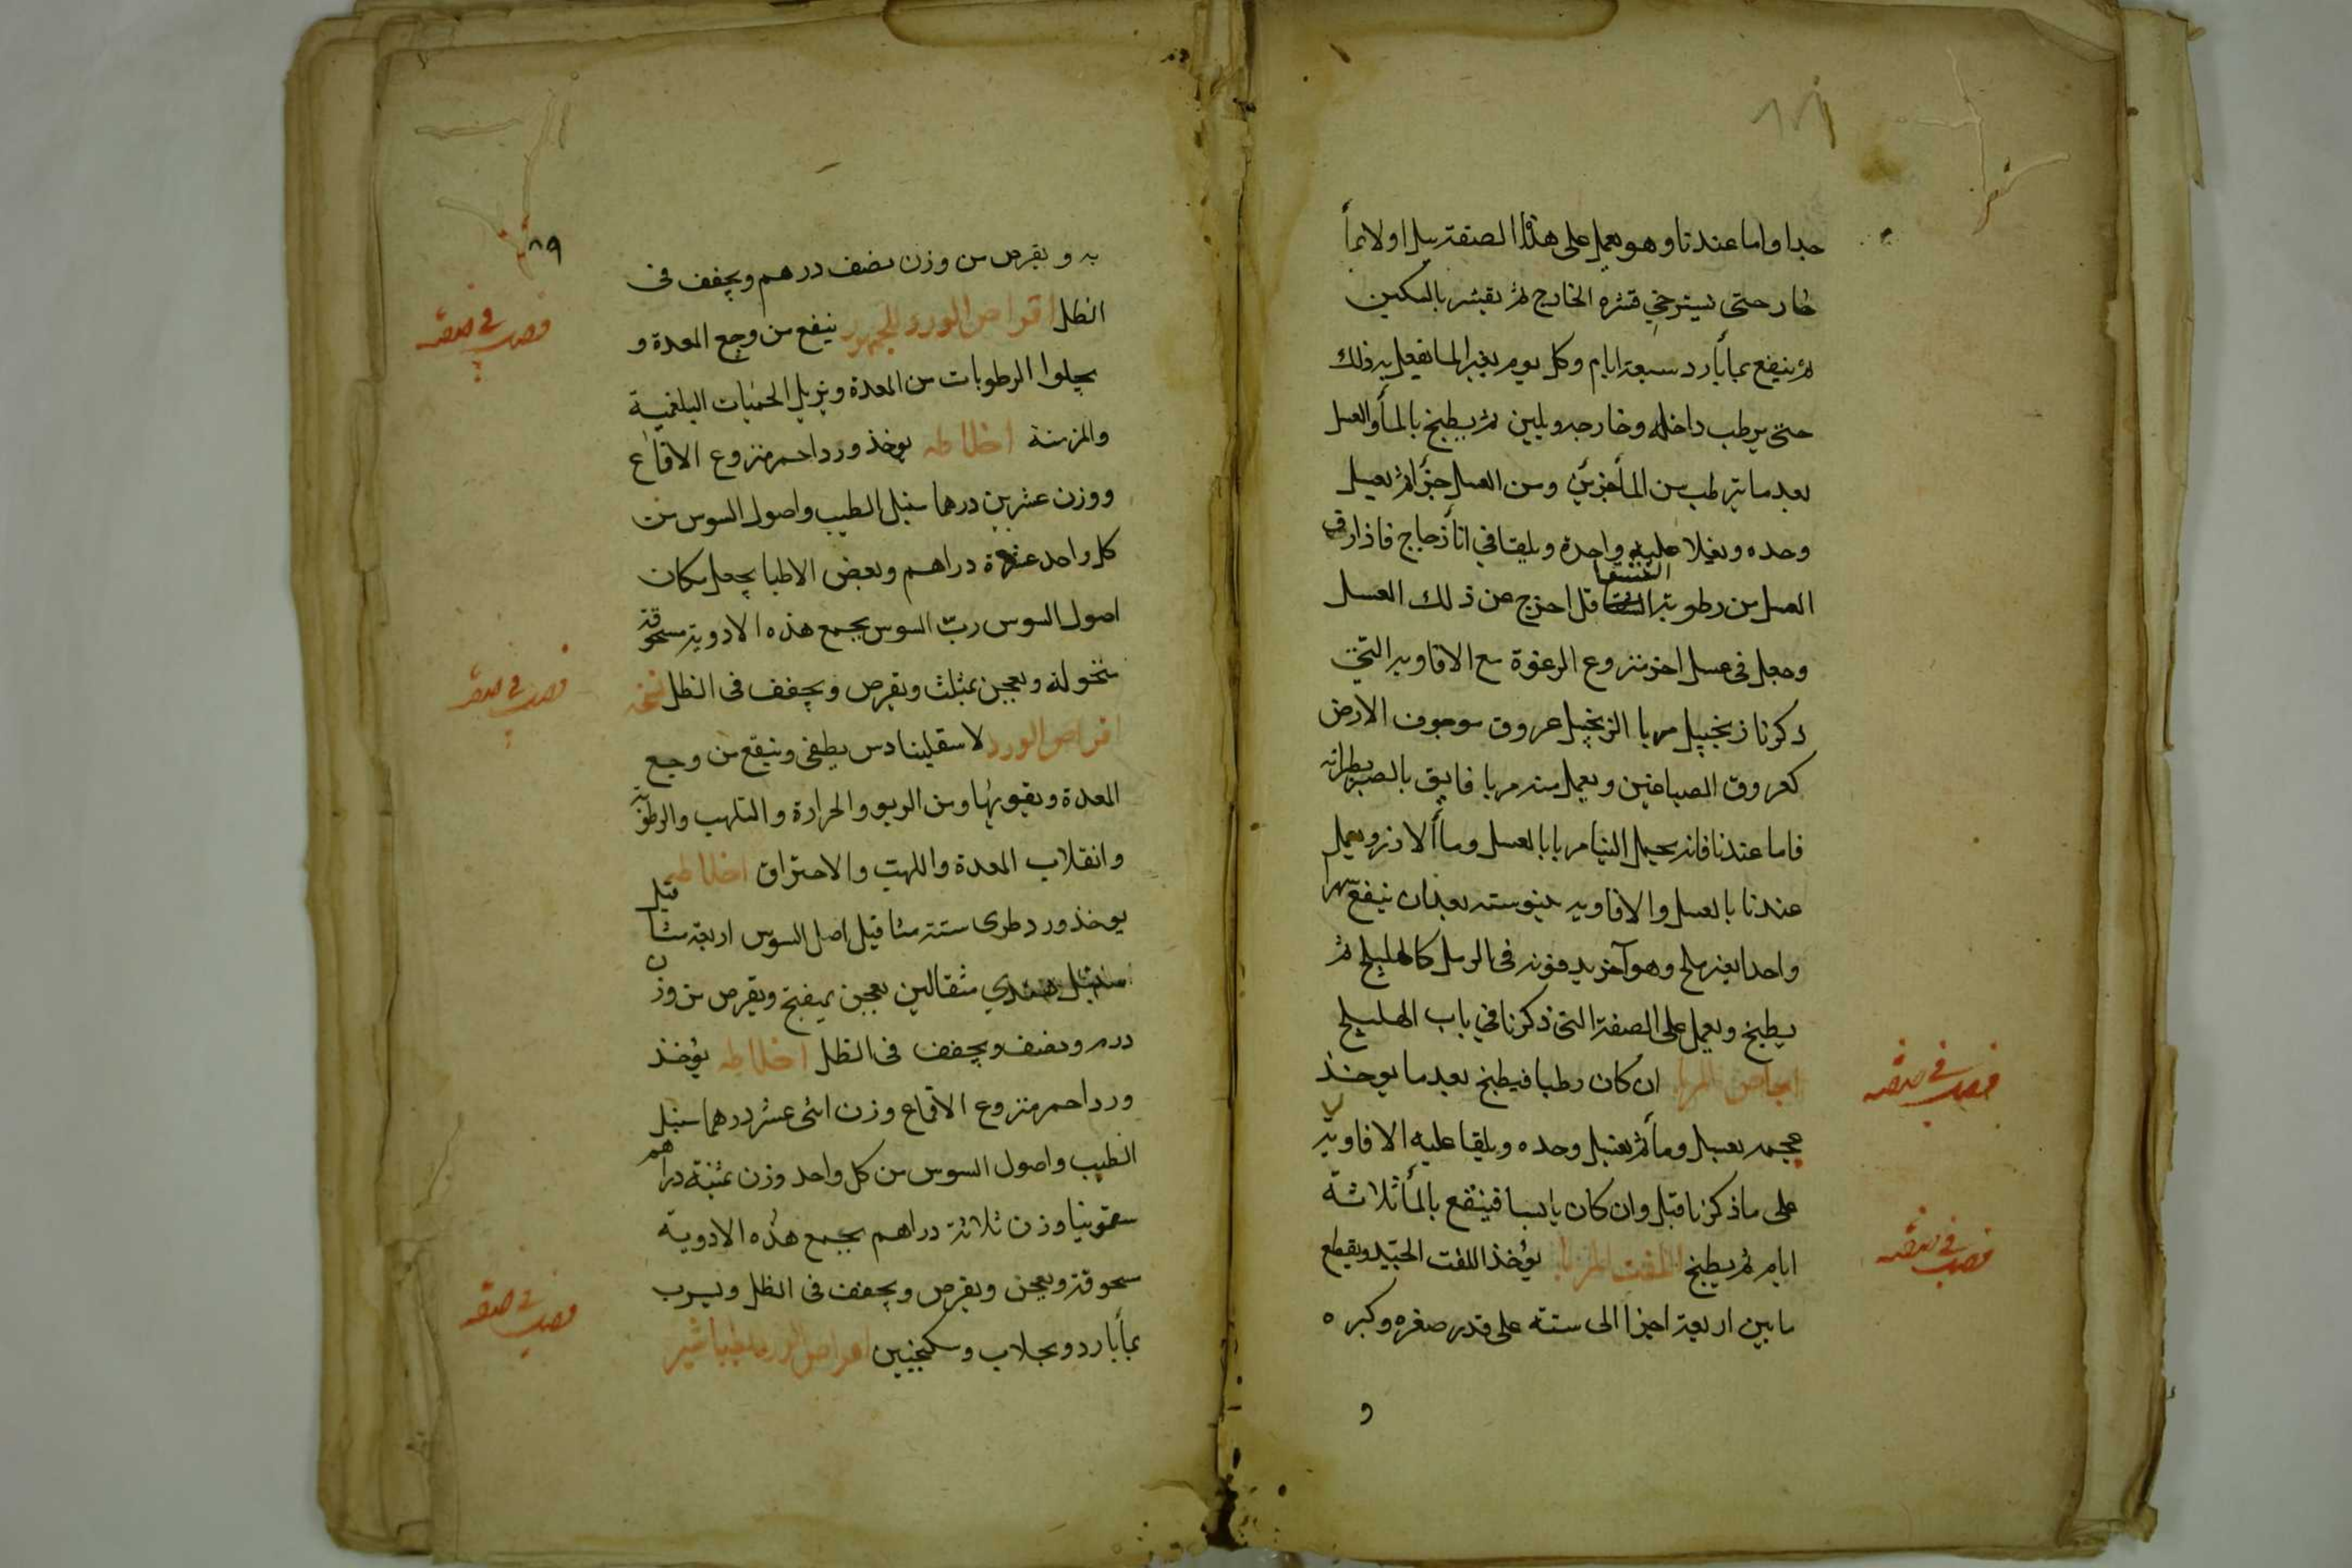 جدا واما عندنا وهو يعمل على هذه الصفة يبل اولا بمأ
حار حتى يسترخي قشره الخارج ثم يقشر بالسكين
ثم ينقع بمأ بارد سبعة ايام وكل يوم يغير الما يفعل به ذلك
حتى يرطب داخله وخارجه ويلين ثم يطبخ بالمأ والعسل
بعد ما يترطب من المأ جزئين ومن العسل جزأ ثم بعسل
وحده ويغلا عليه واحدة ويلقا في انأ زجاج فاذا رق
العسل من رطوبة الشقاقل اخرج عن ذلك العسل
وجعل في عسل اخر منزوع الرغوة مع الافاويه التي
ذكرنا زنجبيل مربا الزنجبيل عروق موجوف الارض
كعروق الصباغين ويعمل منه مربا فايق
فاما عندنا فانه يحمل الينا مربا بالعسل ومأ الارز ويعمل
عندنا بالعسل والافاويه بعد ان ينقع شهرا
واحدا بغير ملح وهو آخر يدفونه في الرمل كالهليلج ثم
يطبخ ويعمل على الصفة التي ذكرنا في باب الهليلج
اجاص المربا ان كان رطبا فيطبخ بعد ما يوخذ
عجمه بعسل ومأ ثم بعسل وحده ويلقا عليه الافاويه
على ما ذكرنا قبل وان كان يابسا فينقع بالمأ ثلاثة
ايام ثم يطبخ اللفت المربا يؤخذ اللفت الجيد ويقطع
ما بين اربعة اجزا الى ستة على قدر صغره وكبره
و
٨٩
به ويقرص من وزن نصف درهم ويجفف في
الظل اقراص الورد للجمهور ينفع من وجع المعدة و
يجلوا الرطوبات من المعدة ويزيل الحميات البلغمية
والمزمنة اخلاطه يوخذ ورد احمر منزوع الاقماع
ووزن عشرين درهما سنبل الطيب واصول السوس من
كل واحد عشرة دراهم وبعض الاطبا يجعل مكان
اصول السوس ربّ السوس يجمع هذه الادوية مسحوقة
منخولة ويعجن بمثلث ويقرص ويجفف في الظل نسخة
اقراص الورد لاسقلينادس يطفى وينفع من وجع
المعدة ويقويها ومن الربو والحرارة والتلهب والرطوبة
وانقلاب المعدة واللهيب والاحتراق اخلاطه
يوخذ ورد طري ستة مثاقيل اصل السوس اربعة مثاقيل
سنبل هندي مثقالين يعجن بميفبختج ويقرص من وزن
درهم ونصف ويجفف في الظل اخلاطه يؤخذ
ورد احمر منزوع الاقماع وزن اثنى عشر درهما سنبل
الطيب واصول السوس من كل واحد وزن ثمنية دراهم
سقمونيا وزن ثلاثة دراهم يجمع هذه الادوية
مسحوقة ويعجن ويقرص ويجفف في الظل ويسرب
بمأ بارد وبجلاب وسكنجبين اقراص الورد بطباشير